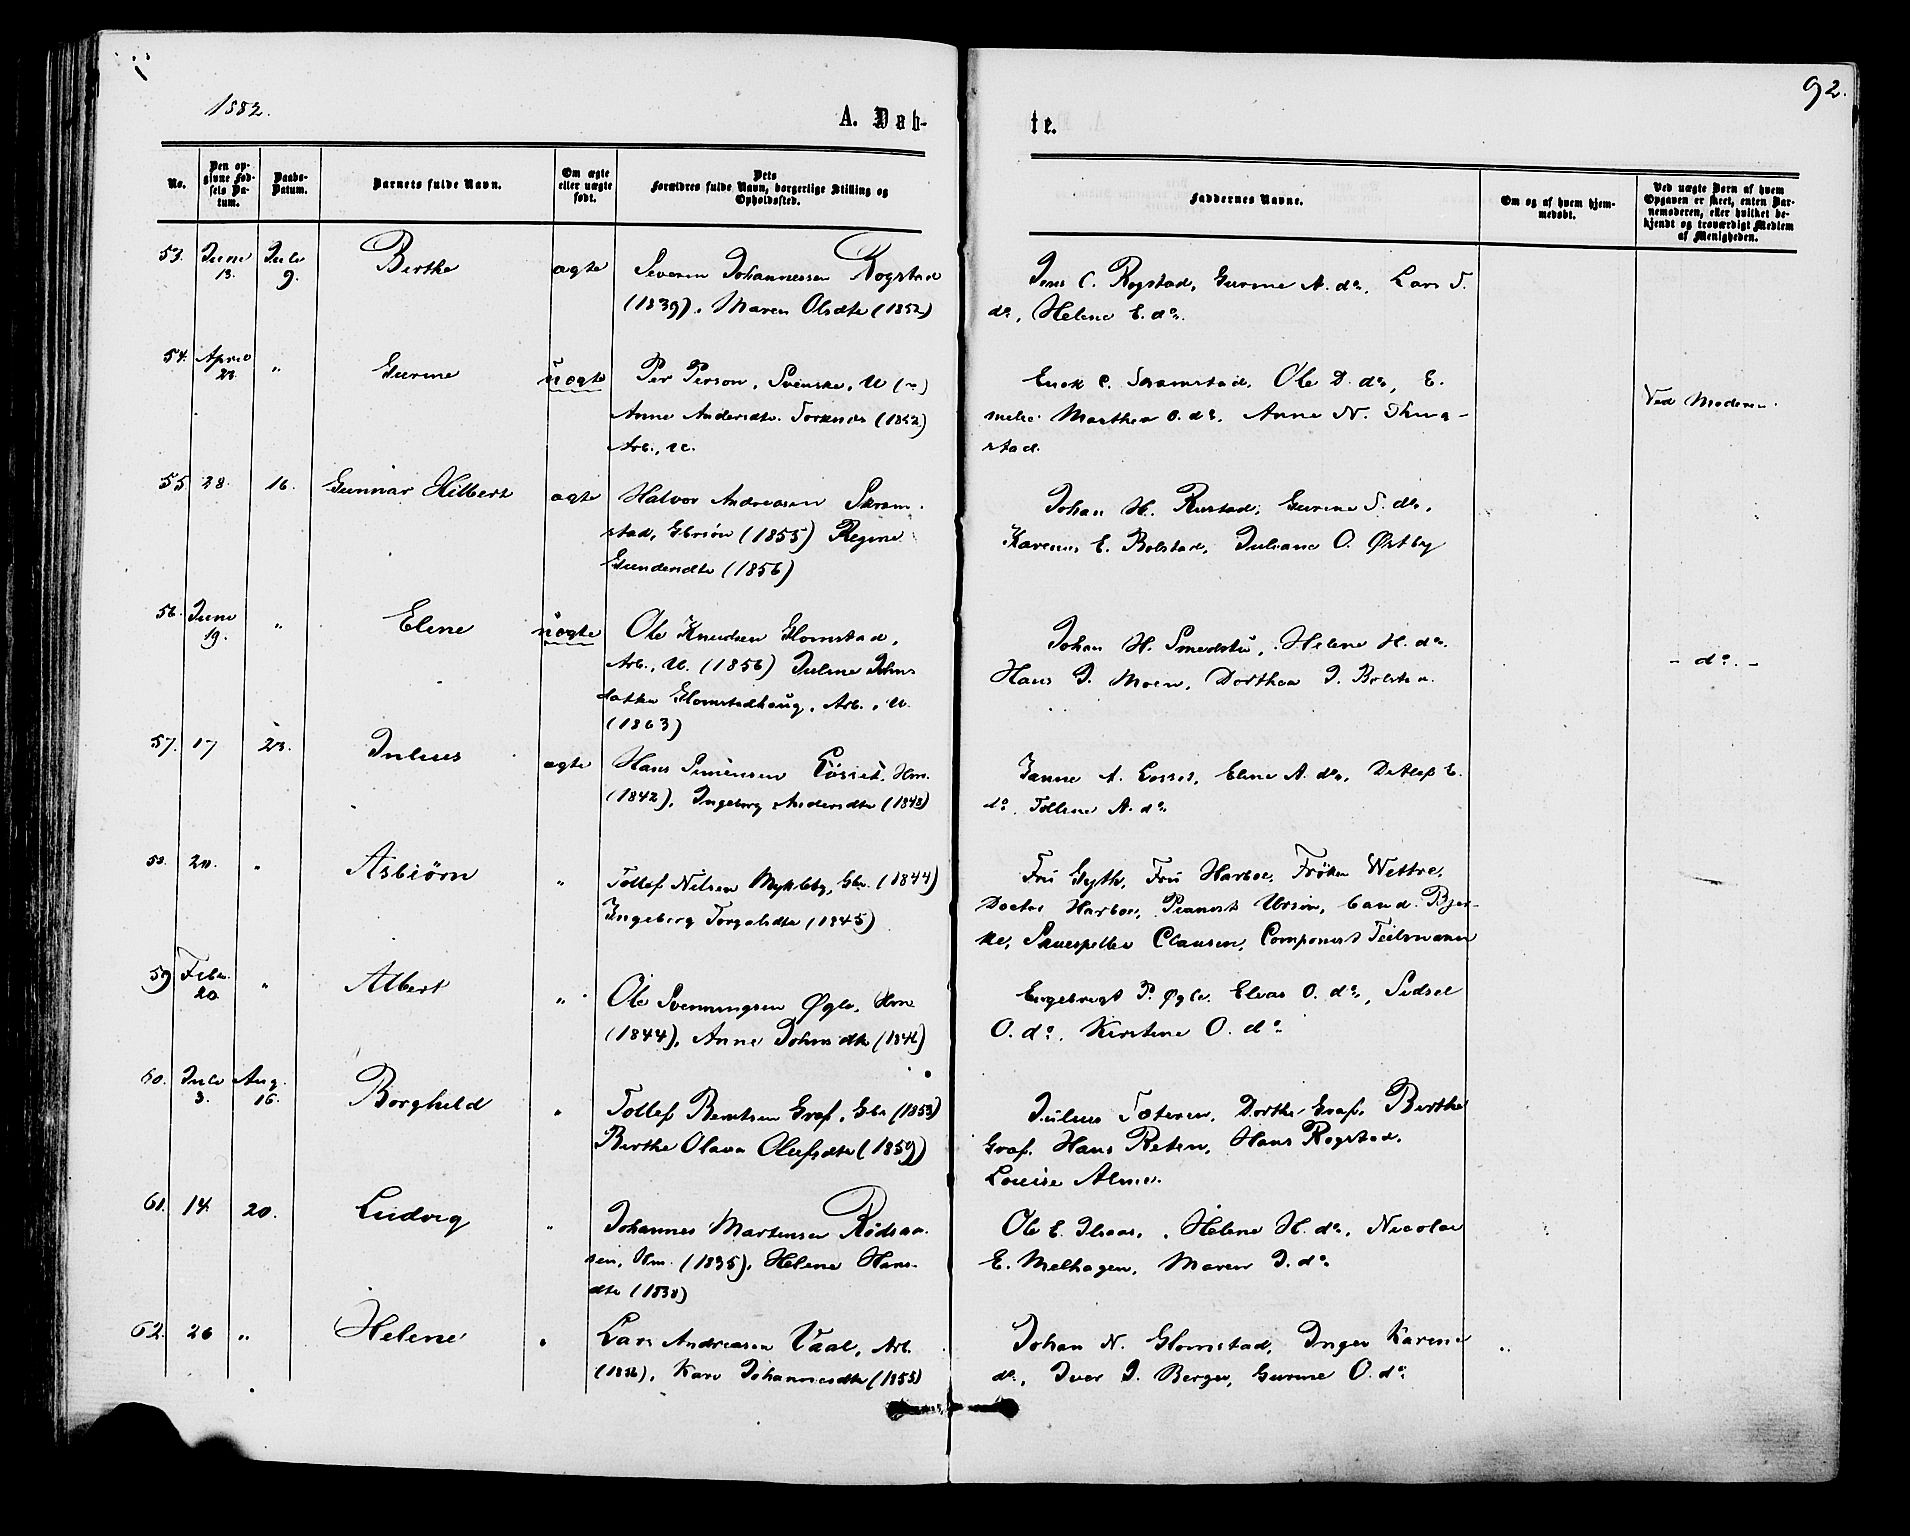 1882.
92.
A. Døb-
te.
No.
Den op-
givne Fød-
sels Da-
tum.
Daabs-
Datum.
Barnets fulde Navn.
Om ægte
eller uægte
født.
Dets
Forældres fulde Navn, borgerlige Stilling og
Opholdssted.
Faddernes Navne.
Om og af hvem hjem-
medøbt.
Ved uægte Børn af hvem
Opgaven er skeet, enten Bar-
nemoderen, eller hvilket be-
kjendt og troværdigt Medlem
af Menigheden.
53. Juni 13. Juli 9. Berthe ægte Severin Johannessen Rogstad
(1839), Maren Olsdtr (1852)
Jens C. Rogstad, Gurine A. do, Lars S.
do, Helene E. do.
54. April 23. " Gurine uægte Per Person, Svenske, U (")
Anne Andersdtr (1852)
Arb., U.
Ole D. do, E-
melie Marthea O. do, Anne N.
stad.
Ved Moderen.
55. 28. 16. Gunnar Hilbert ægte Halvor Andreasen Skram-
stad, Gbrsøn (1855) Regine
Gundersdtr (1856)
Johan H. Rustad, Gurine S. do,
Karenus E. Bolstad, Juliane O. Østby
56. Juni 19. " Eline uægte Ole Knudsen Glomstad,
Arb., U. (1856) Juline Johns-
datter Glomstadhaug, Arb., U.
(1863)
Johan H. Smedstu, Helene H. do.
Hans J. Moen, Dorthea J. Bolstad.
- do. -
57. 17 23. Julius ægte Hans Simensen Losset, Hm.
(1842), Ingeborg Andersdtr (1848)
Janne A. Losset, Eline A. do, Detlef E.
do, Tolline A. do
58. 20. " Asbiørn " Tollef Nilsen Mykleby, Gbr. (1844)
Ingeborg Torgalsdtr (1845)
Fru Gyth, Fru Harboe, Frøken Wettre,
Doctor Harboe, Pianist Ursin, Cand. Bjer-
ke, Skuespiller Clausen, Componist Teilmann
59. Febr. 20. " Albert " Ole Svenningsen Øgle, Hm
(1844), Anne Johnsdtr (1846)
Engebregt P. Øgle, Elias O. do, Sidsel
O. do, Kirstine O. do
60. Juli 3. Aug. 16. Borghild " Tollef Berntsen Græf, Gbr (1853)
Berthe Olava Olufsdtr (1859)
Julius Sæteren, Dorthe Græf, Berthe
Græf, Hans Reten, Hans Rogstad,
Louise Alme.
61. 14. 20. Ludvig " Johannes Martinsen Rødsaa-
sen, Hm. (1835), Helene Hans-
dtr (1838)
Ole E. Ilsaas, Helene H. do, Nicolai
E. Melhagen, Maren J. do
62. 26 " Helene " Lars Andreasen Vaal, Arb.
(1856), Kari Johannesdtr (1855)
Johan N. Glomstad, Inger Karine
do, Iver J. Berger, Gurine O. do